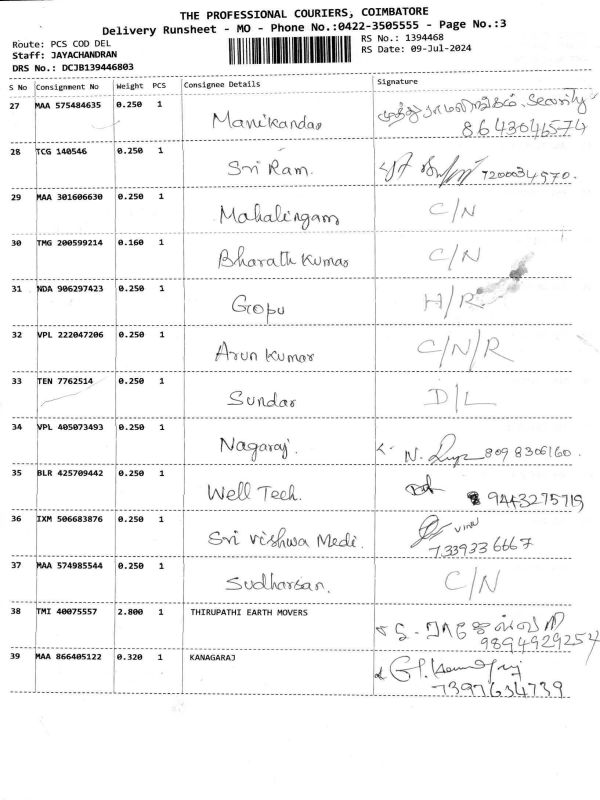 THE PROFESSIONAL COURIERS, COIMBATORE
Delivery Runsheet - MO - Phone No.:0422-3505555 - Page No.:3
Route: PCS COD DEL
RS No.: 1394468
Staff: JAYACHANDRAN
RS Date: 09-Jul-2024
DRS No.: DCJB139446803
S No Consignment No Weight PCS Consignee Details Signature
27 MAA 575484635 0.250 1 Manikandan முத்துராமலிங்கம். Security
8643046574
28 TCG 140546 0.250 1 Sri Ram. 7200034970.
29 MAA 301606630 0.250 1 Mahalingam C/N
30 TMG 200599214 0.160 1 Bharath Kumar C/N
31 NDA 906297423 0.250 1 Gopu H/R
32 VPL 222047206 0.250 1 Arun Kumar C/N/R
33 TEN 7762514 0.250 1 Sundar D/L
34 VPL 405073493 0.250 1 Nagaraj. N. 8098306160.
35 BLR 425709442 0.250 1 Well Tech. 9443275719
36 IXM 506683876 0.250 1 Sri Vishwa Medi. VINU
7339336667
37 MAA 574985544 0.250 1 Sudharsan. C/N
38 TMI 40075557 2.800 1 THIRUPATHI EARTH MOVERS
9894929254
39 MAA 866405122 0.320 1 KANAGARAJ
7397634739